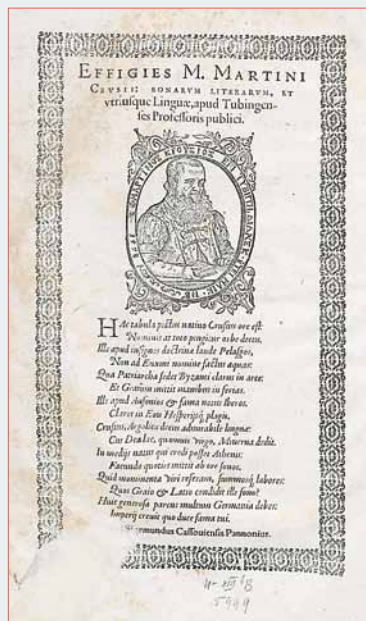 EFFIGIES M. MARTINI
CRVSII: BONARVM LITERARVM, ET
vtriusque Linguæ, apud Tubingen-
ses Professoris publici.
HAc tabula pictus natiuo Crusius ore est:
Nominis at toto pingitur orbe decus.
Ille apud insignes doctrinæ laude Pelasgos,
Non ad Euxini nomine factus aquas:
Qua Patriarcha sedet Byzanti clarus in arce:
Et Graium mittit in
Ille apud Ausonios & fama notus Iberos.
Claret in Hesperijsq; plagis.
Crusius, Argolicæ decus admirabile linguæ:
Cui quamuis virgo, Minerua dedit.
In medijs natus qui credi posset Athenis:
Facundo quoties mittit ab ore sonos.
Quid monimenta viri referam, summosq; labores:
Quos Graio & Latio condidit ille sono?
Huic generosa parens multum Germania debes:
Imperij creuit quo duce fama tui.
Pannonius.